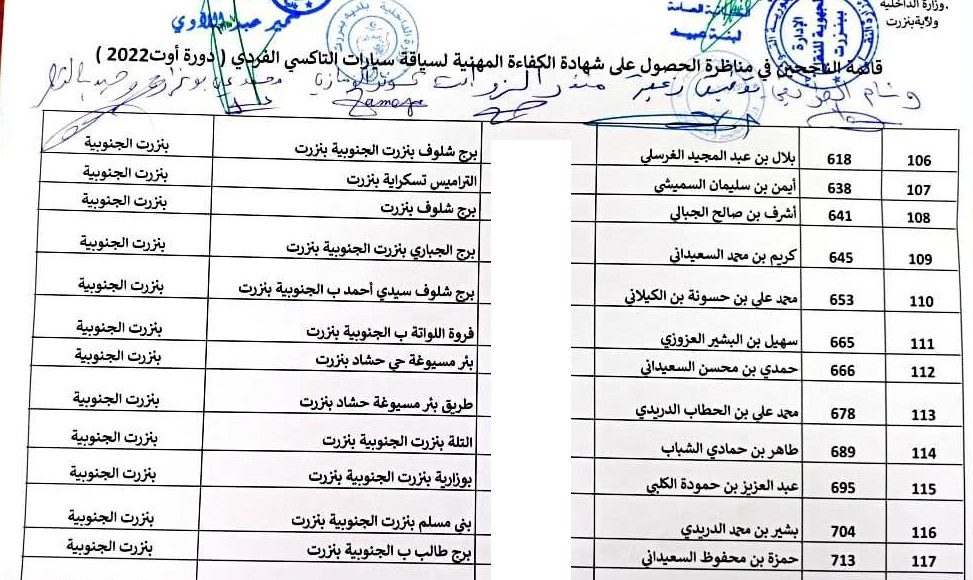 وزارة الداخلية
ولاية بنزرت
الإدارة
الجهوية للنقل
ببنزرت
قائمة الناجحين في مناظرة الحصول على شهادة الكفاءة المهنية لسياقة سيارات التاكسي الفردي ( دورة أوت2022 )
106 618 بلال بن عبد المجيد الغرسلي برج شلوف بنزرت الجنوبية بنزرت بنزرت الجنوبية
107 638 أيمن بن سليمان السميشي التراميس تسكراية بنزرت بنزرت الجنوبية
108 641 أشرف بن صالح الجبالي برج شلوف بنزرت بنزرت الجنوبية
109 645 كريم بن محمد السعيداني برج الجباري بنزرت الجنوبية بنزرت بنزرت الجنوبية
110 653 محمد علي بن حسونة بن الكيلاني برج شلوف سيدي أحمد ب الجنوبية بنزرت بنزرت الجنوبية
111 665 سهيل بن البشير العزوزي فروة اللواتة ب الجنوبية بنزرت بنزرت الجنوبية
112 666 حمدي بن محسن السعيداني بئر مسيوغة حي حشاد بنزرت بنزرت الجنوبية
113 678 محمد علي بن الحطاب الدريدي طريق بئر مسيوغة حشاد بنزرت بنزرت الجنوبية
114 689 طاهر بن حمادي الشباب التلة بنزرت الجنوبية بنزرت بنزرت الجنوبية
115 695 عبد العزيز بن حمودة الكلبي بوزارية بنزرت الجنوبية بنزرت بنزرت الجنوبية
116 704 بشير بن محمد الدريدي بني مسلم بنزرت الجنوبية بنزرت بنزرت الجنوبية
117 713 حمزة بن محفوظ السعيداني برج طالب ب الجنوبية بنزرت بنزرت الجنوبية